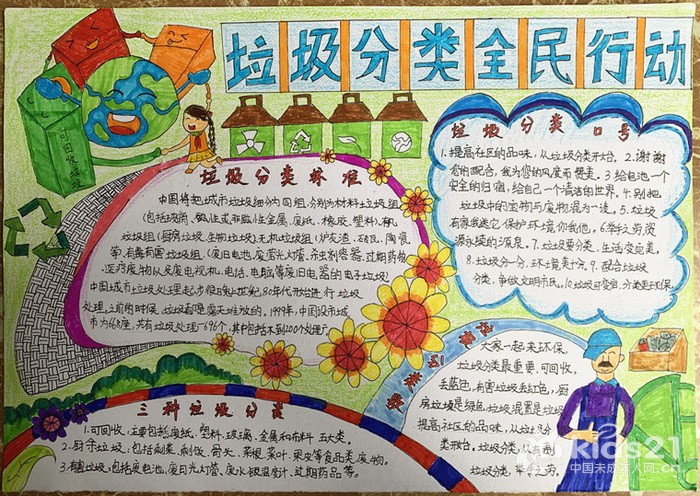 垃圾分类全民行动
可回收垃圾
垃圾分类标准
中国将把城市垃圾细分为四组,分别为材料垃圾组
(包括玻璃、磁性或非磁性金属、废纸、橡胶、塑料)、有机
垃圾组(厨房垃圾、生物垃圾)、无机垃圾组(炉灰渣、砖瓦、陶瓷
等)、有毒有害垃圾组、(废旧电池、废荧光灯管、杀虫剂容器、过期药物
、医疗废物以及废电视机、电话、电脑等废旧电器的电子垃圾)
中国城市垃圾处理起步于 80年代开始进行 垃圾
处理,之前的时候,垃圾都是露天堆放的,1999年,中国设市城
市为668座,共有垃圾处理厂696个,其中包括不到200个处理厂。
垃圾分类口号
1.提高社区的品味,从垃圾分类开始,2.谢谢
您的配合,我为您的风度而赞美.3.给垃圾一个
安全的归宿,给自己一个清洁的世界.4.别把
垃圾中的宝物与废物混为一谈。5.垃圾
有家我送它,保护环境你我他。6.举手之劳 资
源永续的源泉。7.垃圾要分类,生活变完美。
8.垃圾分一分,环境美十分。9.配合垃圾
分类,争做文明市民。10.垃圾可变宝,分类更环保。
三种垃圾分类
1.可回收:主要包括废纸、塑料、玻璃、金属和布料 五大类。
2.厨余垃圾:包括剩菜、剩饭、骨头、菜根菜叶、果皮等食品类废物。
3.有害垃圾:包括废电池、废日光灯管、废水银温度计、过期药品等。
垃圾分类歌
大家一起来环保,
垃圾分类最重要,可回收,
丢蓝色,有害垃圾丢红色,厨
房垃圾是绿色,垃圾混置是垃圾
提高社区的品味,从垃圾分
类开始。垃圾分一
垃圾分类,举手之劳,
kids21
中国未成年人网.cn